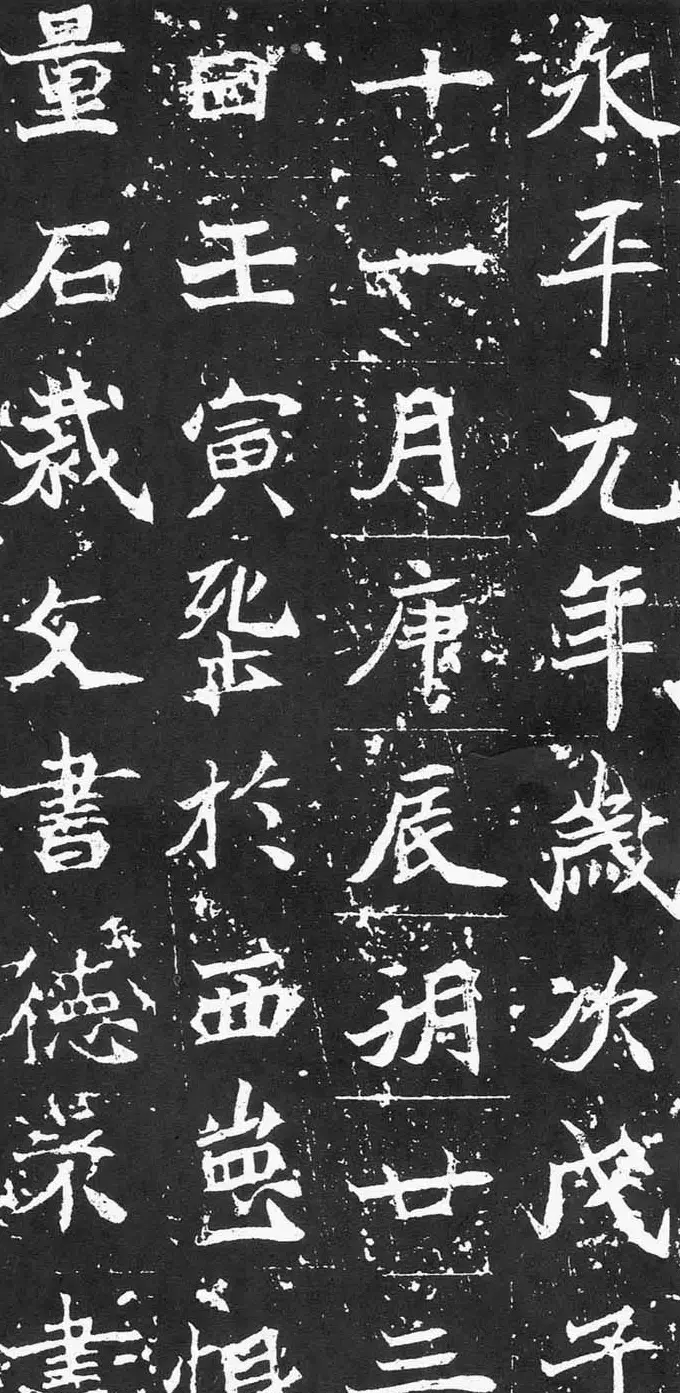 永平元年歲次戊子
十一月庚辰朔廿三
日壬寅葬於西
量石裁文書德